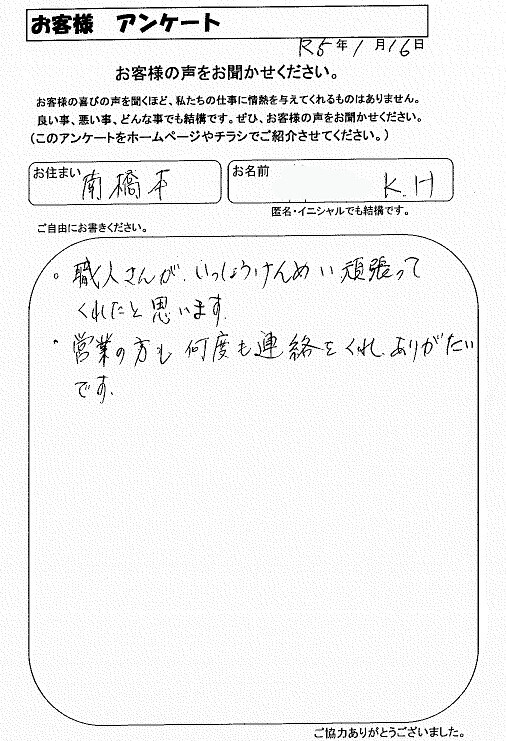 お客様 アンケート
R5年1月16日
お客様の声をお聞かせください。
お客様の喜びの声を聞くほど、私たちの仕事に情熱を与えてくれるものはありません。
良い事、悪い事、どんな事でも結構です。ぜひ、お客様の声をお聞かせください。
(このアンケートをホームページやチラシでご紹介させてください。)
お住まい 南橋本
お名前 K.H
匿名・イニシャルでも結構です。
ご自由にお書きください。
。職人さんが、いっしょうけんめい頑張って
くれたと思います。
。営業の方も何度も連絡をくれ、ありがたい
です。
ご協力ありがとうございました。